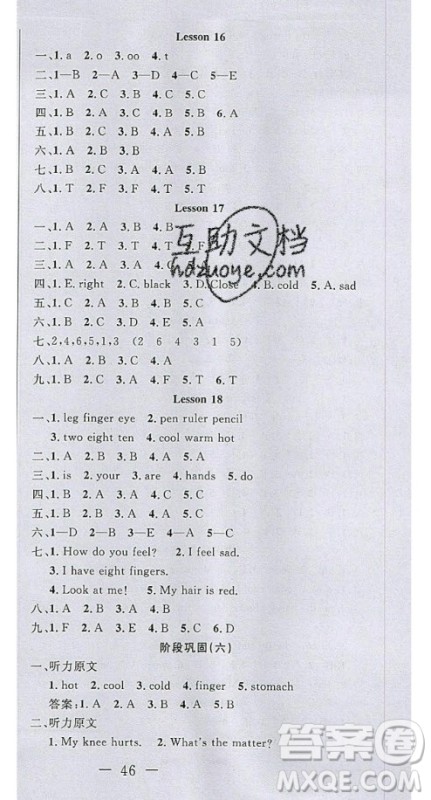 Lesson 16
一、1. a 2. o 3. oo 4. t
二、1—B 2—A 3—D 4—C 5—E
三、1. A 2. C 3. A 4. C 5. C
四、1. C 2. A 3. A 4. B 5. B 6. A
五、1. B 2. C 3. B 4. A 5. C
六、1. A 2. B 3. A 4. A 5. B
七、1. B 2. C 3. A 4. A 5. B
八、1. T 2. F 3. T 4. F 5. T
Lesson 17
一、1. A 2. A 3. B
二、1. F 2. T 3. F
三、1. A 2. C 3. A
四、1. E. right 2. C. black 3. D. Close 4. B. cold 5. A. sad
五、1. C 2. A 3. C 4. B 5. A
六、1. B 2. A 3. B 4. B 5. A
七、2,4,6,5,1,3 (2 6 4 3 1 5)
八、1. A 2. B 3. A 4. B 5. A
九、1. B 2. A 3. F 4. T 5. F
Lesson 18
一、1. leg finger eye 2. pen ruler pencil
3. two eight ten 4. cool warm hot
二、1. A 2. A 3. B 4. A 5. A
三、1. is 2. your 3. are 4. hands 5. do
四、1. B 2. A 3. B 4. A 5. A
五、1. B 2. B 3. A 4. A 5. B
六、1—D 2—B 3—E 4—A 5—C
七、1. How do you feel? 2. I feel sad.
3. I have eight fingers.
4. Look at me! 5. My hair is red.
八、1. A 2. B 3. A 4. B 5. A
九、1. F 2. F 3. T 4. F 5. F
阶段巩固(六)
一、听力原文
1. hot 2. cool 3. cold 4. finger 5. stomach
答案:1. A 2. A 3. B 4. A 5. B
二、听力原文
1. My knee hurts. 2. What's the matter?
— 46 —
互助文档
hdzuoye.com
答案圈
MXQE.COM